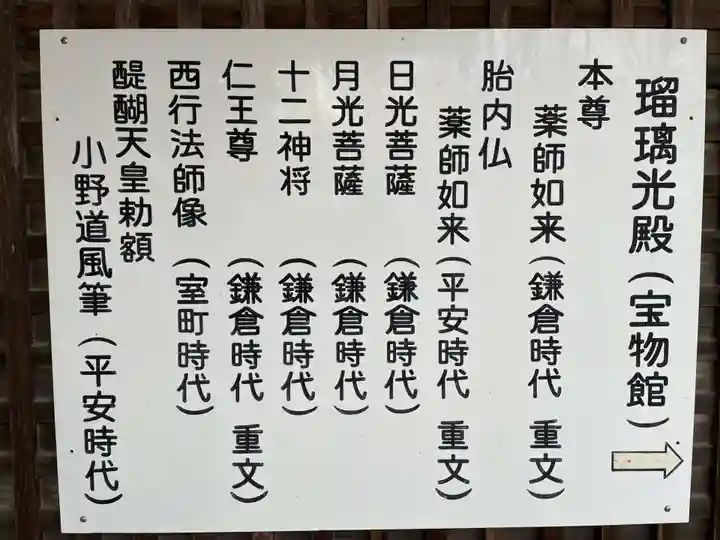 瑠璃光殿(宝物館)
本尊
薬師如来(鎌倉時代 重文)
胎内仏
薬師如来(平安時代 重文)
日光菩薩 (鎌倉時代)
月光菩薩 (鎌倉時代)
十二神将 (鎌倉時代)
仁王尊 (鎌倉時代 重文)
西行法師像 (室町時代)
醍醐天皇勅額
小野道風筆(平安時代)